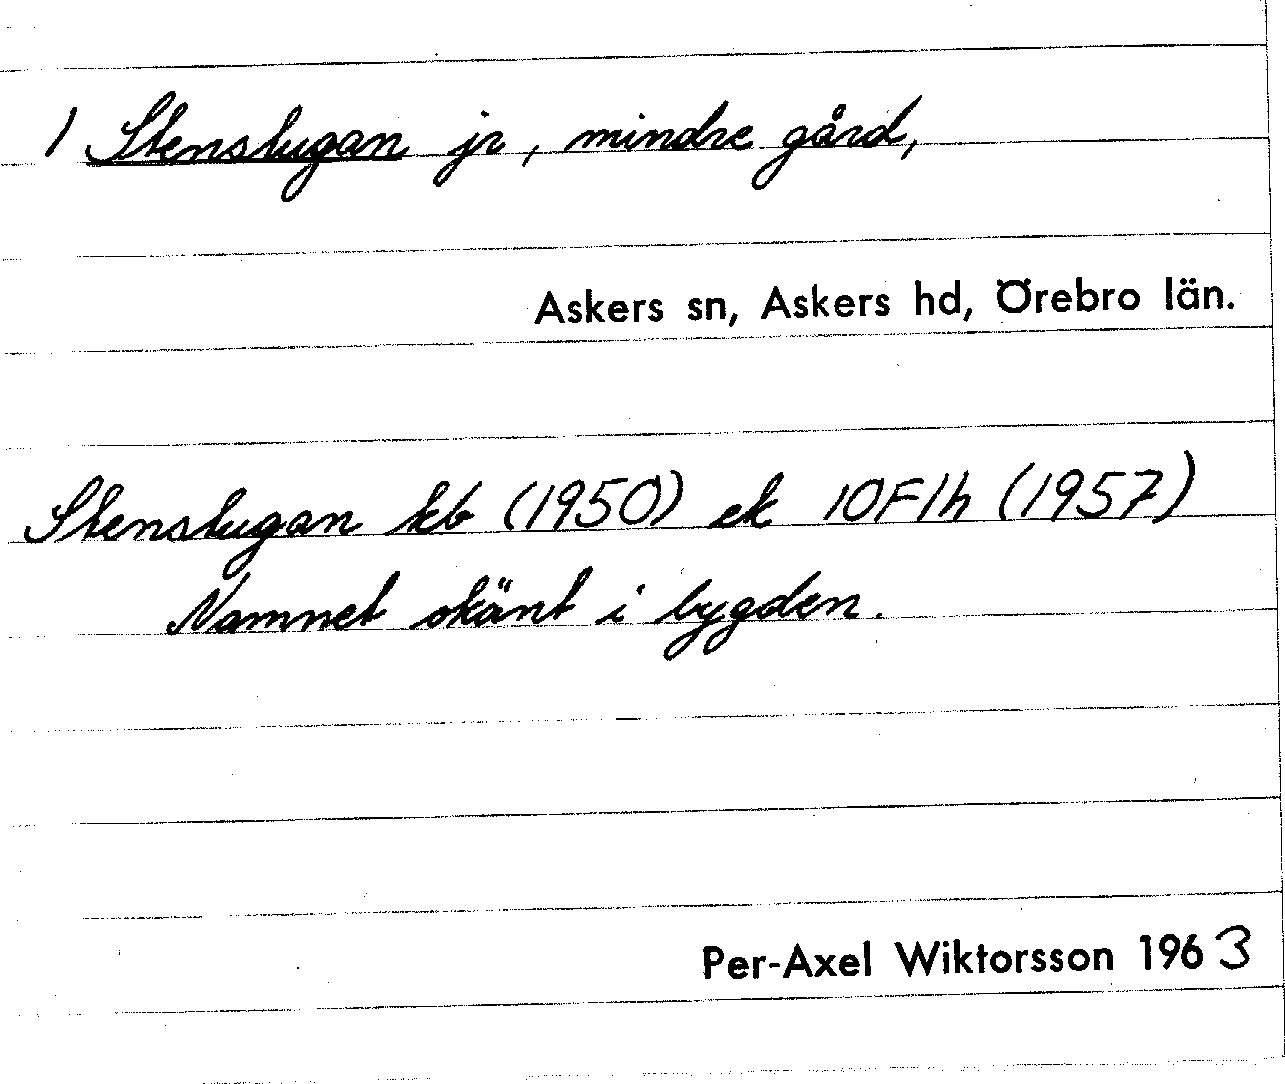 1 Stenstugan jr, mindre gård,
Askers sn, Askers hd, Örebro län.
Stenstugan kb (1950) ek 10F1h (1957)
Namnet okänt i bygden.
Per-Axel Wiktorsson 1963